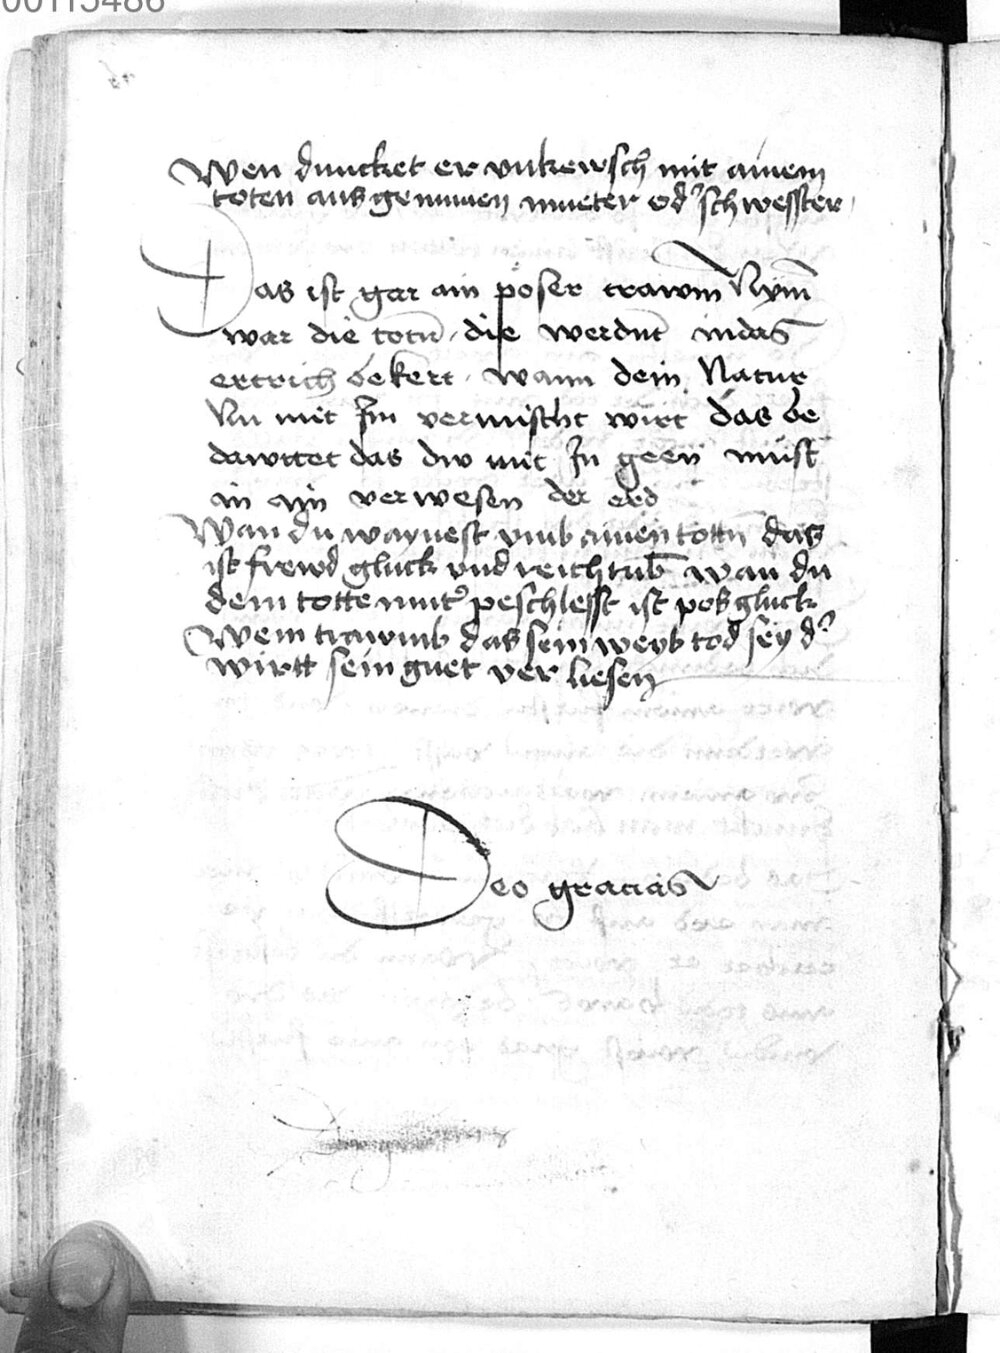 00115486
Wen duncket er vnkewsch mit ainem
toten ausgenumen mueter od' schwesster
Das ist gar ain poser trawm Nym̄
war die totn̄ die werdn̄t in das
ertrich bekert wann dein Natur
Nu mit Im vermischt wirt das be
dawttet das dw mit In geen must
in ain verwesen der erd
Wan du waynest vmb ainen tottn̄ das
ist frewd gluck vnd reichtub̄ wan du
dem totten mit' peschlefst ist pos gluck
Wem traumb das sein weyb tod sey d'
wirtt sein guet ver liesen
Deo gracias